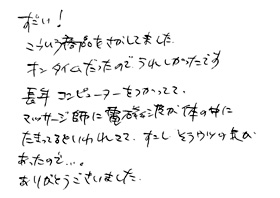 すごい!
こういう商品をさがしてました。
オンタイムだったのでうれしかったです
長年 コンピューターをつかってて、
マッサージ師に電磁波が体の中に
たまってるといわれてて、すこしそうウツの気が
あったので…。
ありがとうございました。